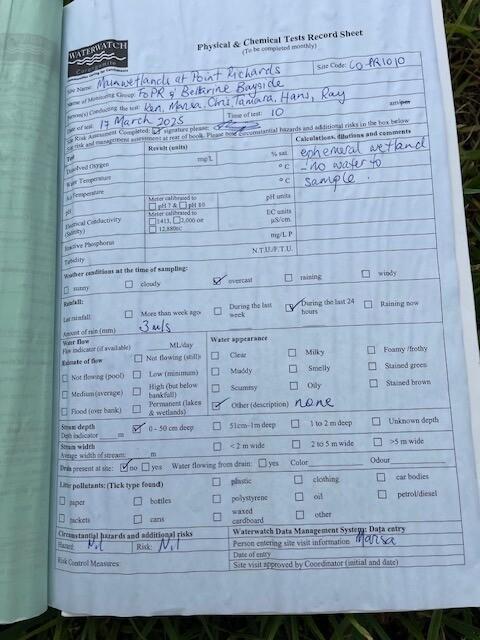 WATERWATCH
Physical & Chemical Tests Record Sheet
(To be completed monthly)
Site Name: Wetlands at Point Richards
Site Code: CO PR1010
Name of Monitoring Group: FoPR & Bellarine Bayside
Person(s) Conducting the test: Ken, Marsa, Chris Tamara, Hans, Ray
Date of test: 17 March 2025 Time of test: 10 am/pm
Site Risk Assessment Completed: signature please: Please note circumstantial hazards and additional risks in the box below
risk and management assessment at rear of book.
Test Result (units) Calculations, dilutions and comments
Dissolved Oxygen mg/L % sat. ephemeral wetland
Water Temperature °C - no water to
Air Temperature °C sample.
pH Meter calibrated to pH 7 & pH 10 pH units
Electrical Conductivity (Salinity) Meter calibrated to 1413, 2,000 or 12,880EC EC units µS/cm.
Reactive Phosphorus mg/L P
Turbidity N.T.U/F.T.U.
Weather conditions at the time of sampling:
sunny cloudy overcast raining windy
Rainfall:
Last rainfall: More than week ago During the last week During the last 24 hours Raining now
Amount of rain (mm) 3
Water flow Water appearance
Flow indicator (if available) ML/day Clear Milky Foamy/frothy
Estimate of flow Not flowing (still)
Not flowing (pool) Low (minimum) Muddy Smelly Stained green
Medium (average) High (but below bankfull) Scummy Oily Stained brown
Flood (over bank) Permanent (lakes & wetlands) Other (description) none
Stream depth
Depth indicator m 0 - 50 cm deep 51cm-1m deep 1 to 2 m deep Unknown depth
Stream width
Average width of stream: m < 2 m wide 2 to 5 m wide >5 m wide
Drain present at site: no yes Water flowing from drain: yes Color Odour
Litter pollutants: (Tick type found) plastic clothing car bodies
paper bottles polystyrene oil petrol/diesel
packets cans waxed cardboard other
Circumstantial hazards and additional risks Waterwatch Data Management System: Data entry
Hazard: Nil Risk: Nil Person entering site visit information Marsa
Date of entry
Risk Control Measures: Site visit approved by Coordinator (initial and date)